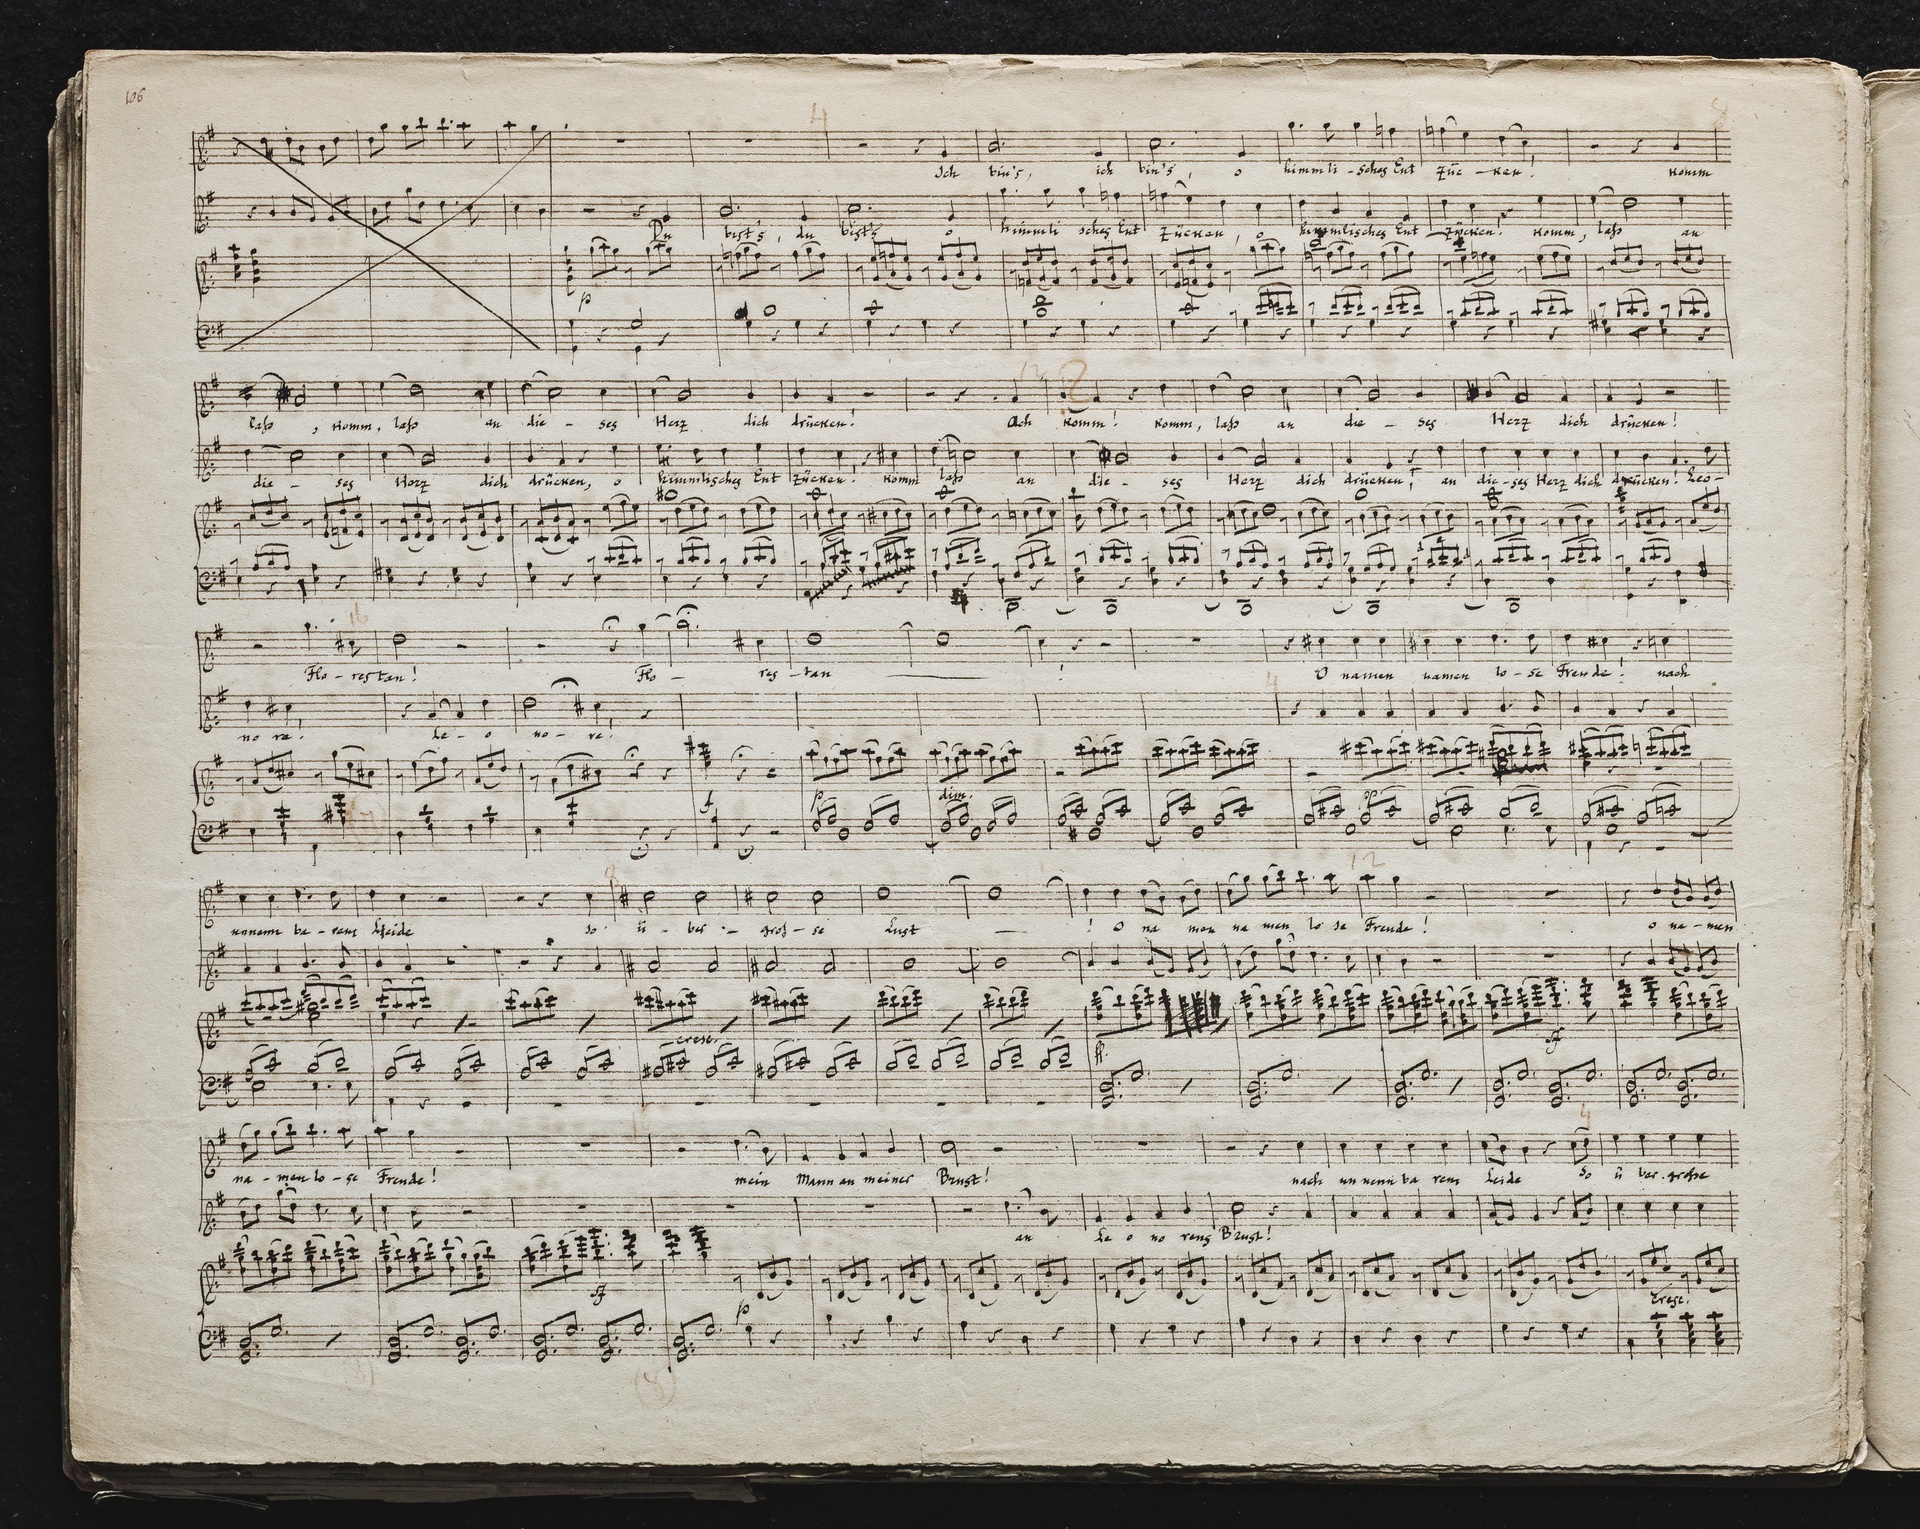 106
4 8
Ich bin's, ich bin's, o himmli-sches Ent Zük-ken! komm
Du bist's, du bist's o himmli sches Ent Zücken, o himmlisches Ent Zücken! komm, laß an
p
12 2
laß, komm, laß an die - ses Herz dich drücken! Ach komm! komm, laß an die - ses Herz dich drücken!
die - ses Herz dich drücken, o himmlisches Ent Zücken! komm laß an die - ses Herz dich drücken, an die-ses Herz dich drücken! Leo-
16
Flo - restan! Flo - res - tan !  O namen namen lo-se Freude! nach
4
no re! Le - o no - re!
f p dim. pp
8 12
unnenn ba - rem Leide so ü - ber - gros - se Lust ! O na men na men lo se Freude! o na-men
cresc.
ff sf
4
na - men lo - se Freude! mein Mann an meiner Brust! nach un nenn ba rem Leide So ü ber.große
an Le o no rens Brust!
sf p cresc.
(8)